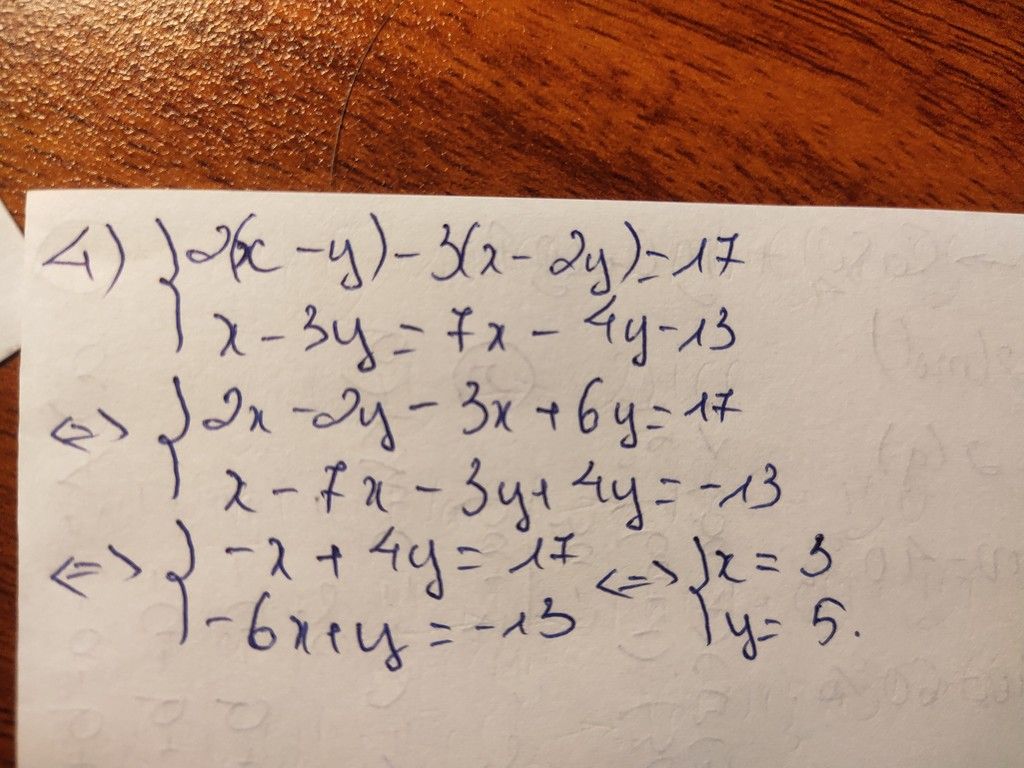 4) { 2(x - y) - 3(x - 2y) = 17
x - 3y = 7x - 4y - 13
<=> { 2x - 2y - 3x + 6y = 17
x - 7x - 3y + 4y = -13
<=> { -x + 4y = 17 <=> { x = 3
-6x + y = -13 y = 5.